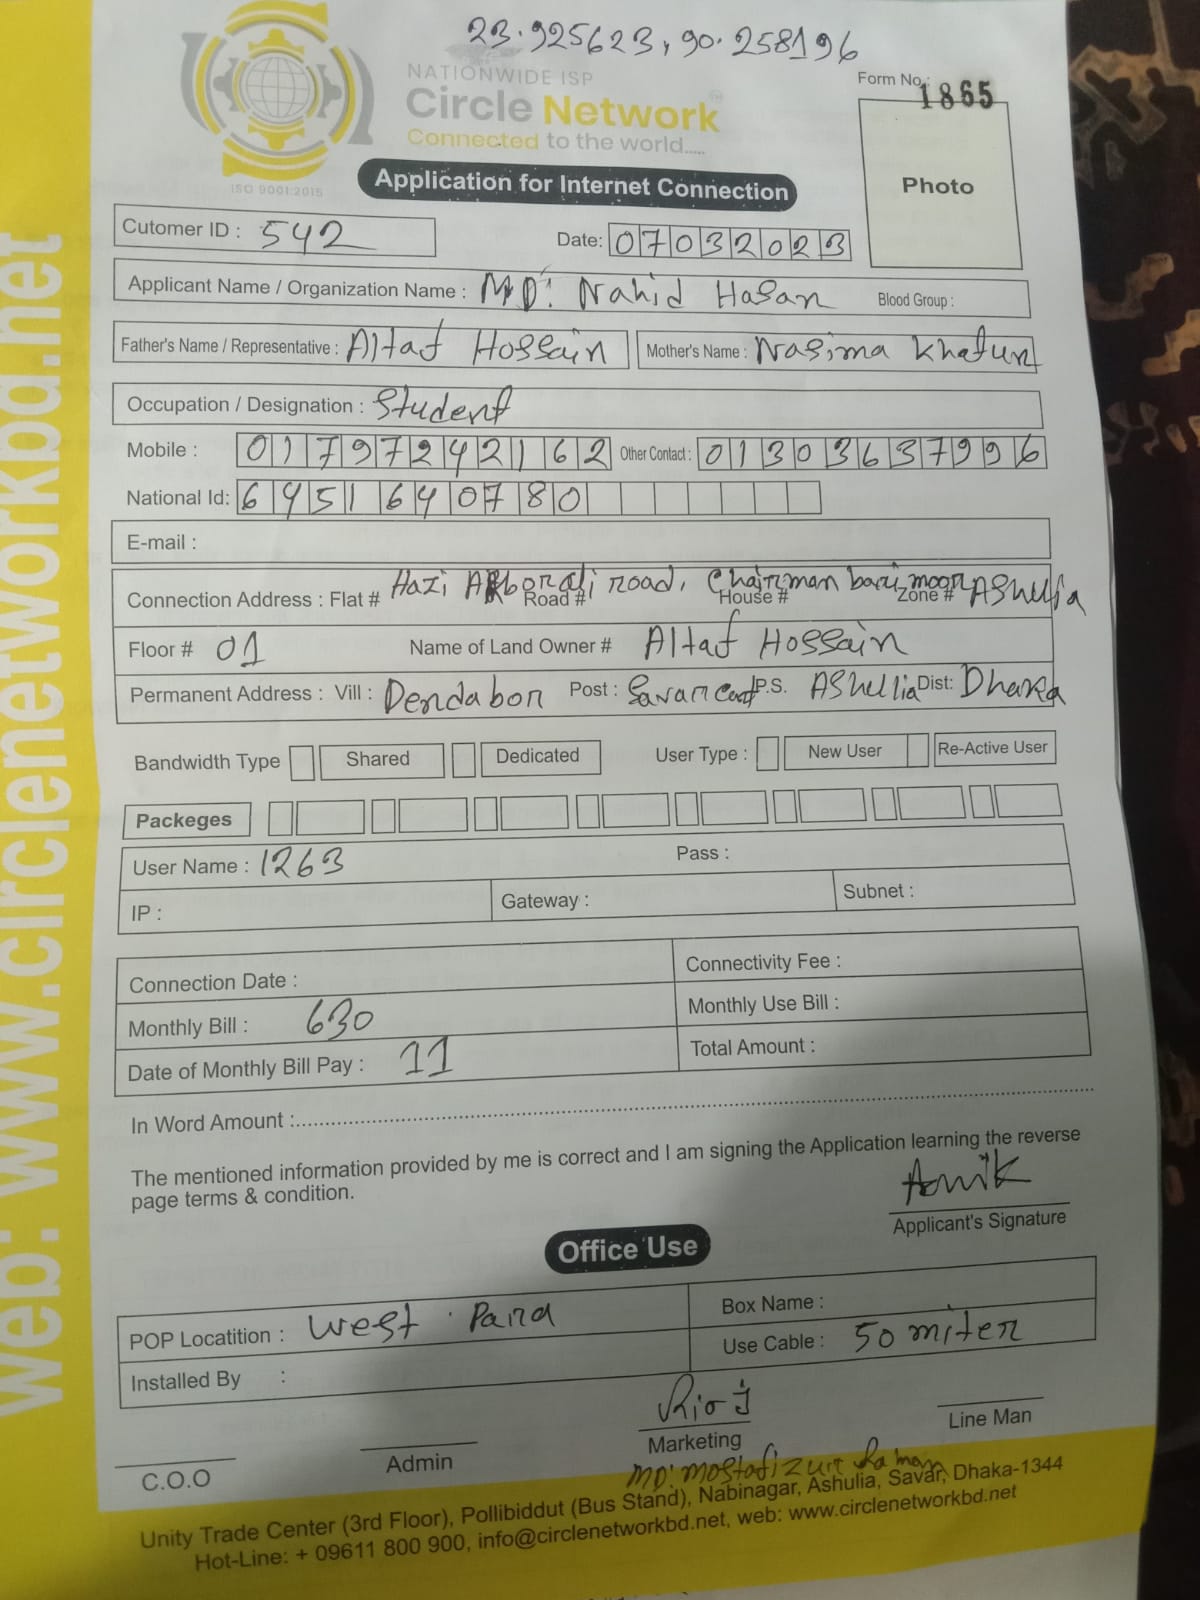 23.925623, 90.258196
NATIONWIDE ISP
Circle Network
Connected to the world.....
ISO 9001:2015
Form No.: 1865
Photo
Application for Internet Connection
Cutomer ID : 542
Date: 07032023
Applicant Name / Organization Name : MD: Nahid Hasan Blood Group :
Father's Name / Representative : Altaf Hossain Mother's Name : Nasima Khatun
Occupation / Designation : Student
Mobile : 01797242162 Other Contact : 01303637996
National Id: 6451640780
E-mail :
Connection Address : Flat # Hazi Akbor ali road, Road # Chairman bari moor House # Zone # AShulia
Floor # 01 Name of Land Owner # Altaf Hossain
Permanent Address : Vill : Dendabor Post : Savar Cant P.S. AShullia Dist: Dhaka
Bandwidth Type Shared Dedicated User Type : New User Re-Active User
Packeges
User Name : 1263 Pass :
IP : Gateway : Subnet :
Connection Date : Connectivity Fee :
Monthly Bill : 630 Monthly Use Bill :
Date of Monthly Bill Pay : 11 Total Amount :
In Word Amount :
The mentioned information provided by me is correct and I am signing the Application learning the reverse
page terms & condition.
Amik
Applicant's Signature
Office Use
POP Locatition : West Para Box Name :
Installed By : Use Cable : 50 miter
C.O.O Admin Marketing Line Man
MD: Mostafizur Rahman
Unity Trade Center (3rd Floor), Pollibiddut (Bus Stand), Nabinagar, Ashulia, Savar, Dhaka-1344
Hot-Line: + 09611 800 900, info@circlenetworkbd.net, web: www.circlenetworkbd.net
web: www.circlenetworkbd.net